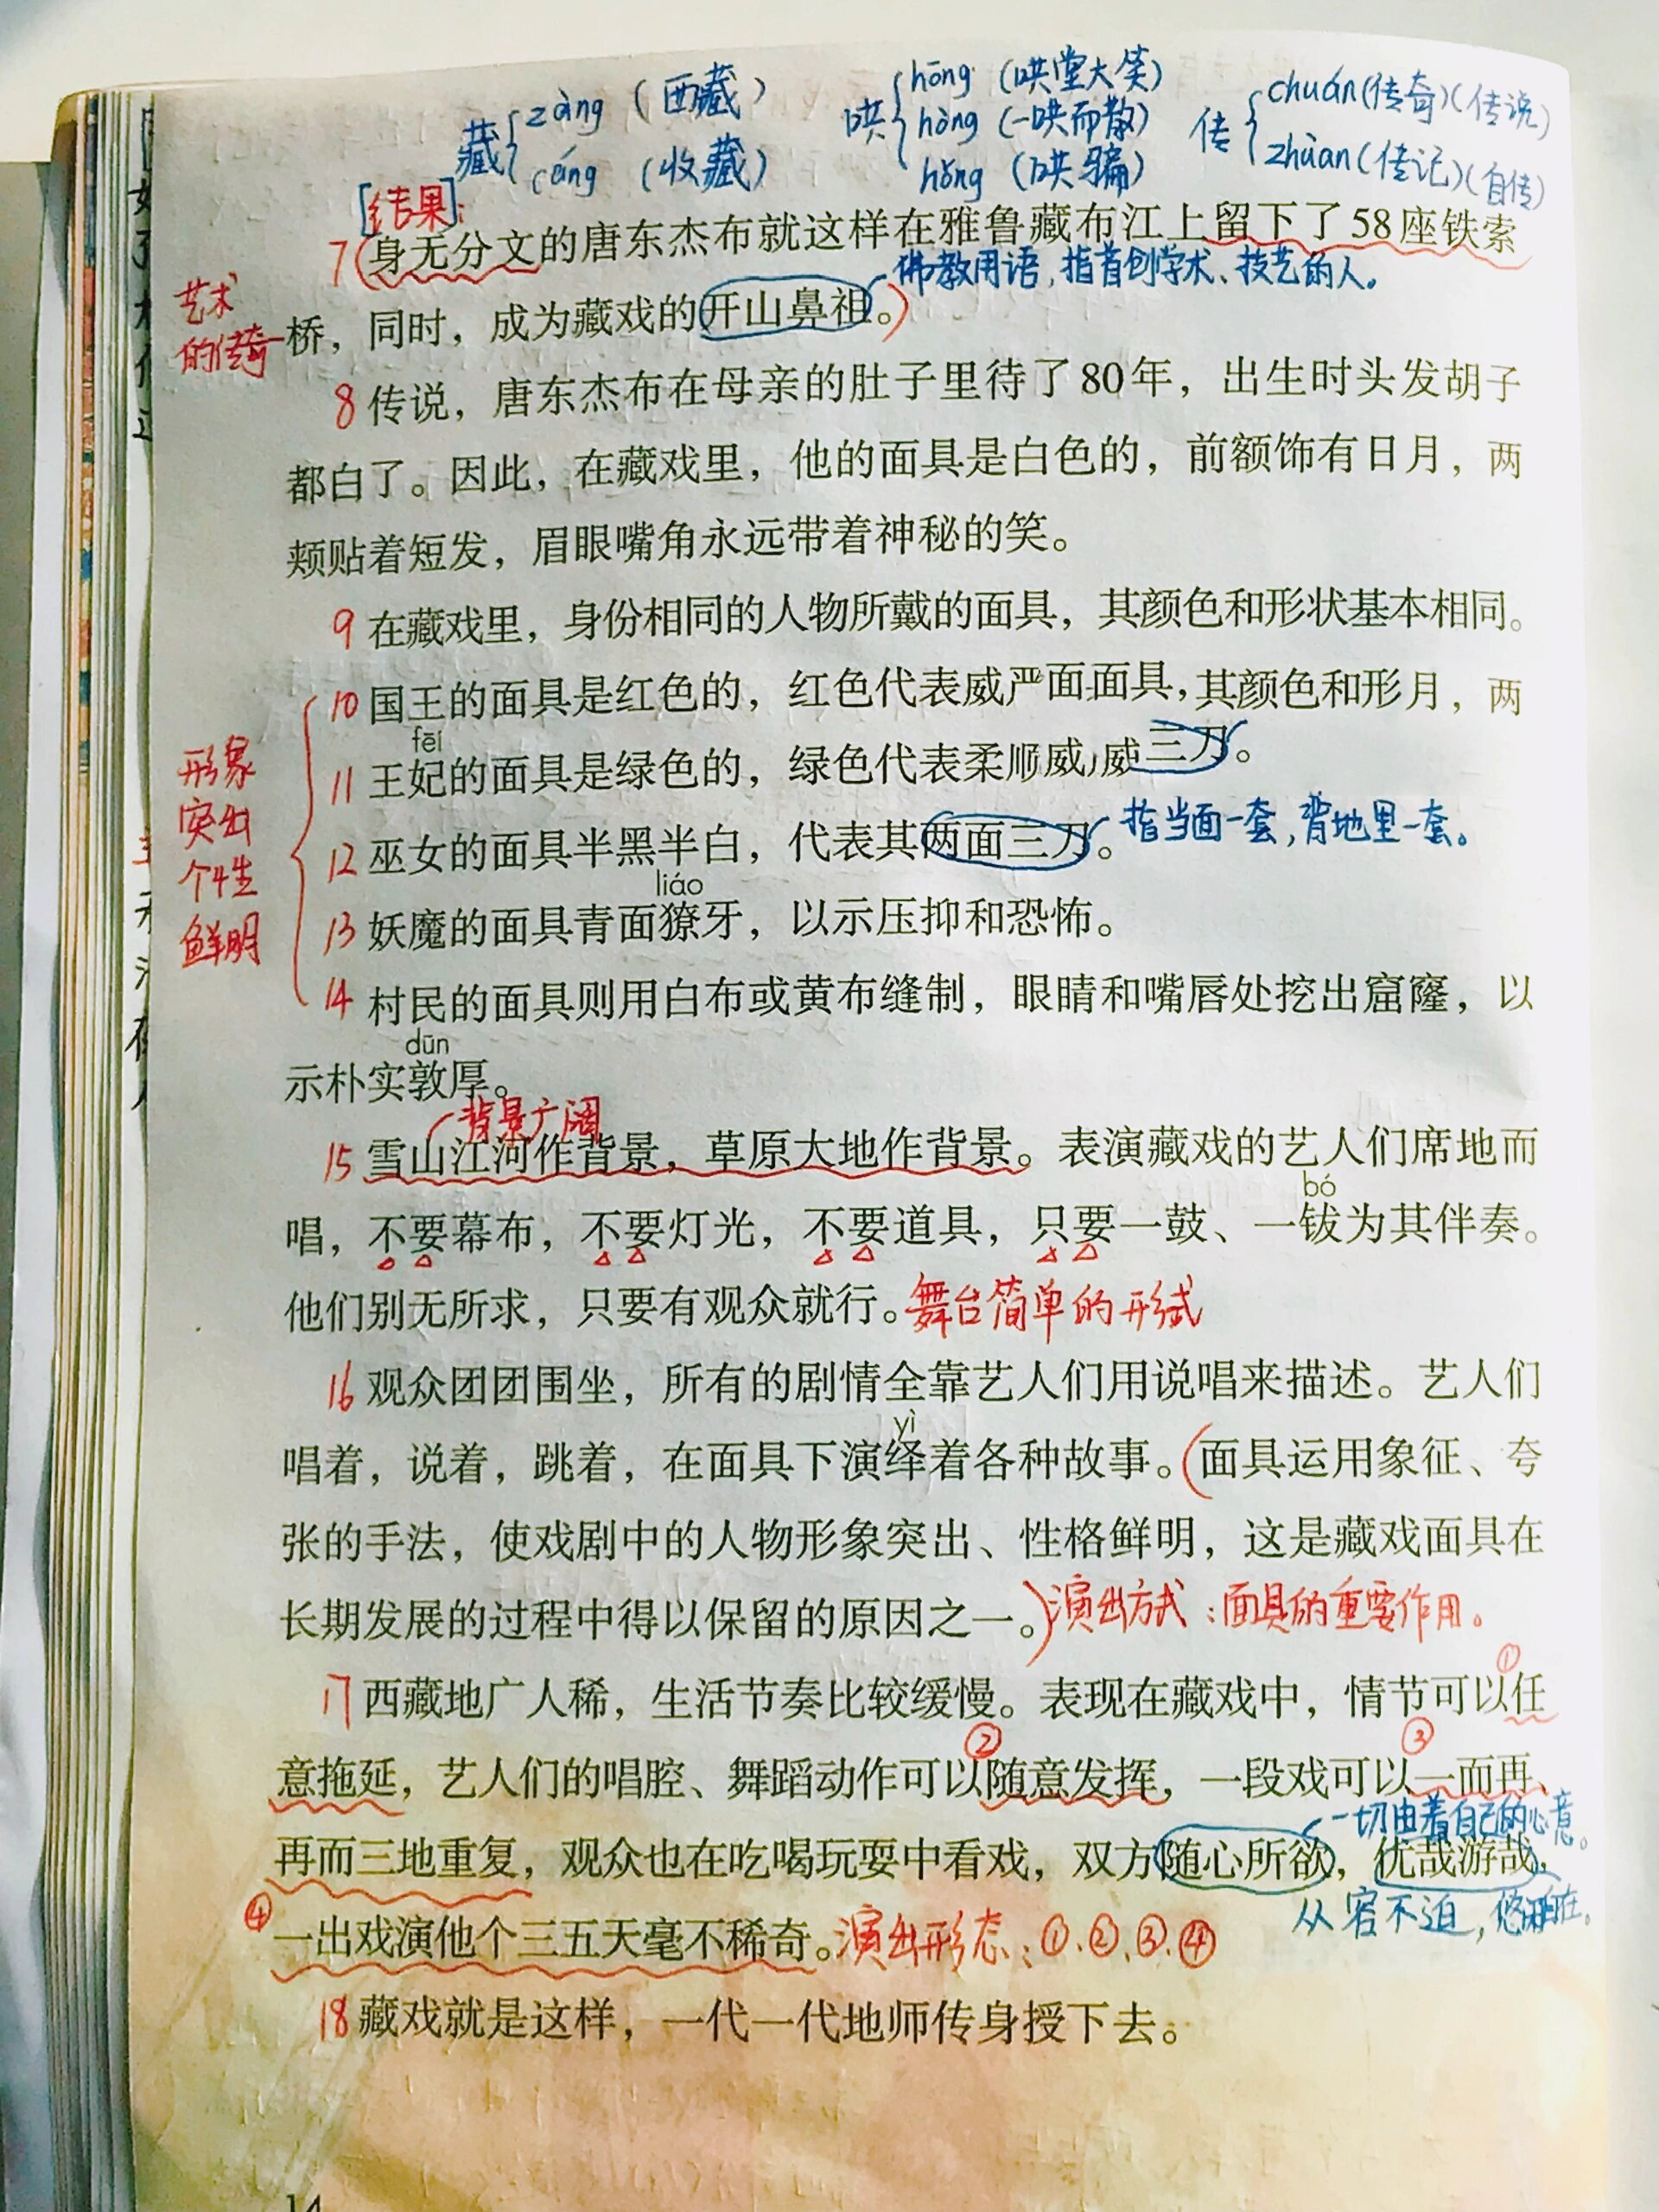 藏 zàng (西藏)
cáng (收藏)
哄 hōng (哄堂大笑)
hòng (一哄而散)
hǒng (哄骗)
传 chuán(传奇)(传说)
zhuàn(传记)(自传)
[结果]:
7(身无分文的唐东杰布就这样在雅鲁藏布江上留下了58座铁索
佛教用语,指首创学术、技艺的人。
艺术
的传奇
桥，同时，成为藏戏的开山鼻祖。)
8 传说，唐东杰布在母亲的肚子里待了80年，出生时头发胡子
都白了。因此，在藏戏里，他的面具是白色的，前额饰有日月，两
颊贴着短发，眉眼嘴角永远带着神秘的笑。
9 在藏戏里，身份相同的人物所戴的面具，其颜色和形状基本相同。
10 国王的面具是红色的，红色代表威严面面具，其颜色和形月，两
fēi
11 王妃的面具是绿色的，绿色代表柔顺威，威三刀。
形象
突出
个性
鲜明
指当面一套,背地里一套。
12 巫女的面具半黑半白，代表其两面三刀。
liáo
13 妖魔的面具青面獠牙，以示压抑和恐怖。
14 村民的面具则用白布或黄布缝制，眼睛和嘴唇处挖出窟窿，以
dūn
示朴实敦厚。
背景广阔
15 雪山江河作背景，草原大地作背景。表演藏戏的艺人们席地而
bó
唱，不要幕布，不要灯光，不要道具，只要一鼓、一钹为其伴奏。
他们别无所求，只要有观众就行。舞台简单的形式
16 观众团团围坐，所有的剧情全靠艺人们用说唱来描述。艺人们
yì
唱着，说着，跳着，在面具下演绎着各种故事。(面具运用象征、夸
张的手法，使戏剧中的人物形象突出、性格鲜明，这是藏戏面具在
长期发展的过程中得以保留的原因之一。)演出方式:面具的重要作用。
①
17 西藏地广人稀，生活节奏比较缓慢。表现在藏戏中，情节可以任
② ③
意拖延，艺人们的唱腔、舞蹈动作可以随意发挥，一段戏可以一而再、
一切由着自己的心意。
再而三地重复，观众也在吃喝玩耍中看戏，双方随心所欲，优哉游哉，
从容不迫,悠闲自在。
④一出戏演他个三五天毫不稀奇。演出形态:①.②.③.④
18 藏戏就是这样，一代一代地师传身授下去。
14